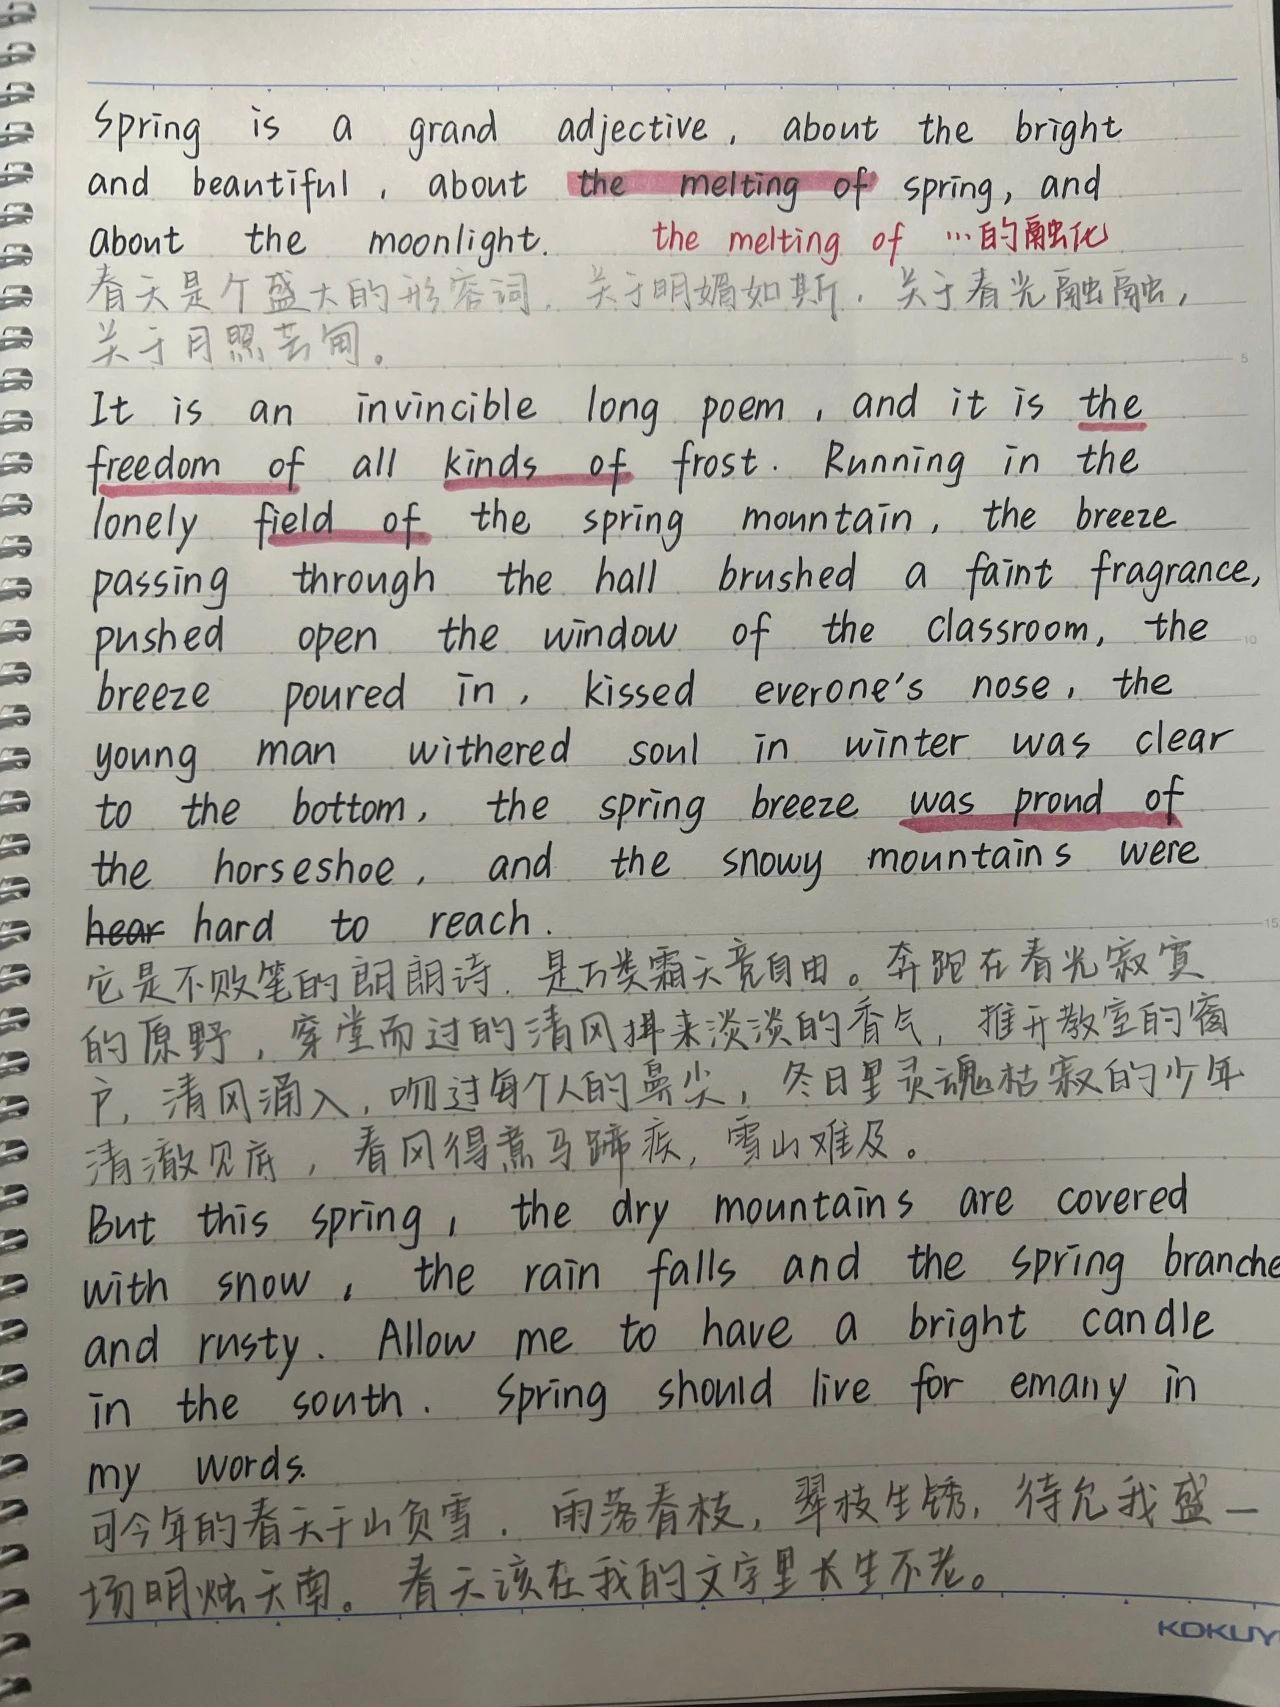 Spring is a grand adjective, about the bright
and beautiful, about the melting of spring, and
about the moonlight. the melting of …的融化
春天是个盛大的形容词，关于明媚如斯，关于春光融融，
关于月照芸甸。
It is an invincible long poem, and it is the
freedom of all kinds of frost. Running in the
lonely field of the spring mountain, the breeze
passing through the hall brushed a faint fragrance,
pushed open the window of the classroom, the
breeze poured in, kissed everone's nose, the
young man withered soul in winter was clear
to the bottom, the spring breeze was proud of
the horseshoe, and the snowy mountains were
hear hard to reach.
它是不败笔的朗朗诗，是万类霜天竞自由。奔跑在春光寂寞
的原野，穿堂而过的清风拂来淡淡的香气，推开教室的窗
户，清风涌入，吻过每个人的鼻尖，冬日里灵魂枯寂的少年
清澈见底，春风得意马蹄疾，雪山难及。
But this spring, the dry mountains are covered
with snow, the rain falls and the spring branche
and rusty. Allow me to have a bright candle
in the south. Spring should live for emany in
my words.
可今年的春天干山负雪，雨落春枝，翠枝生锈，待允我盛一
场明烛天南。春天该在我的文字里长生不老。
KOKUY